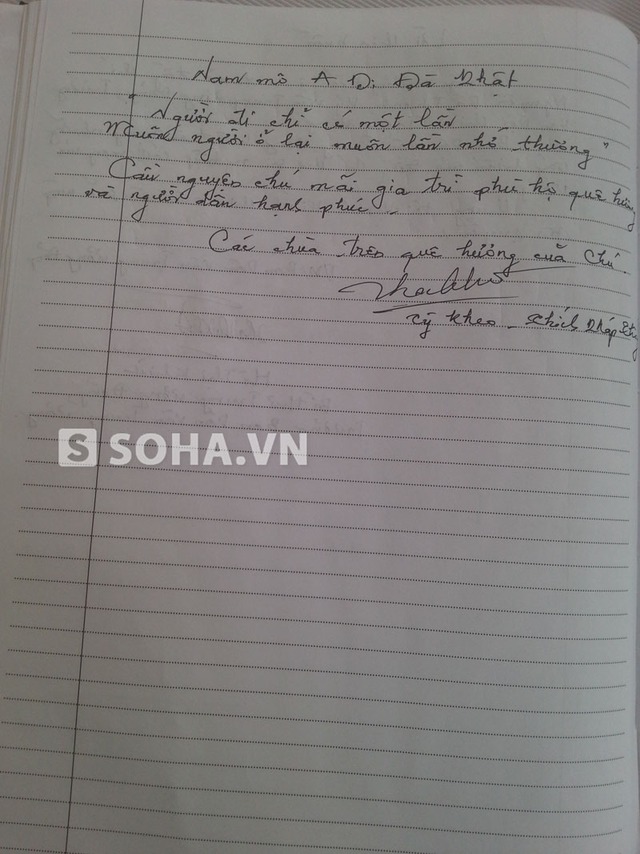 Nam mô A Di Đà Phật
"Người đi chỉ có một lần
Muôn người ở lại muôn lần nhớ thương"
Cầu nguyện chú mãi gia trì phù hộ quê hương
và người dân hạnh phúc.
Các chùa trên quê hương của Chú.
Tỳ kheo - Thích Pháp
SOHA.VN